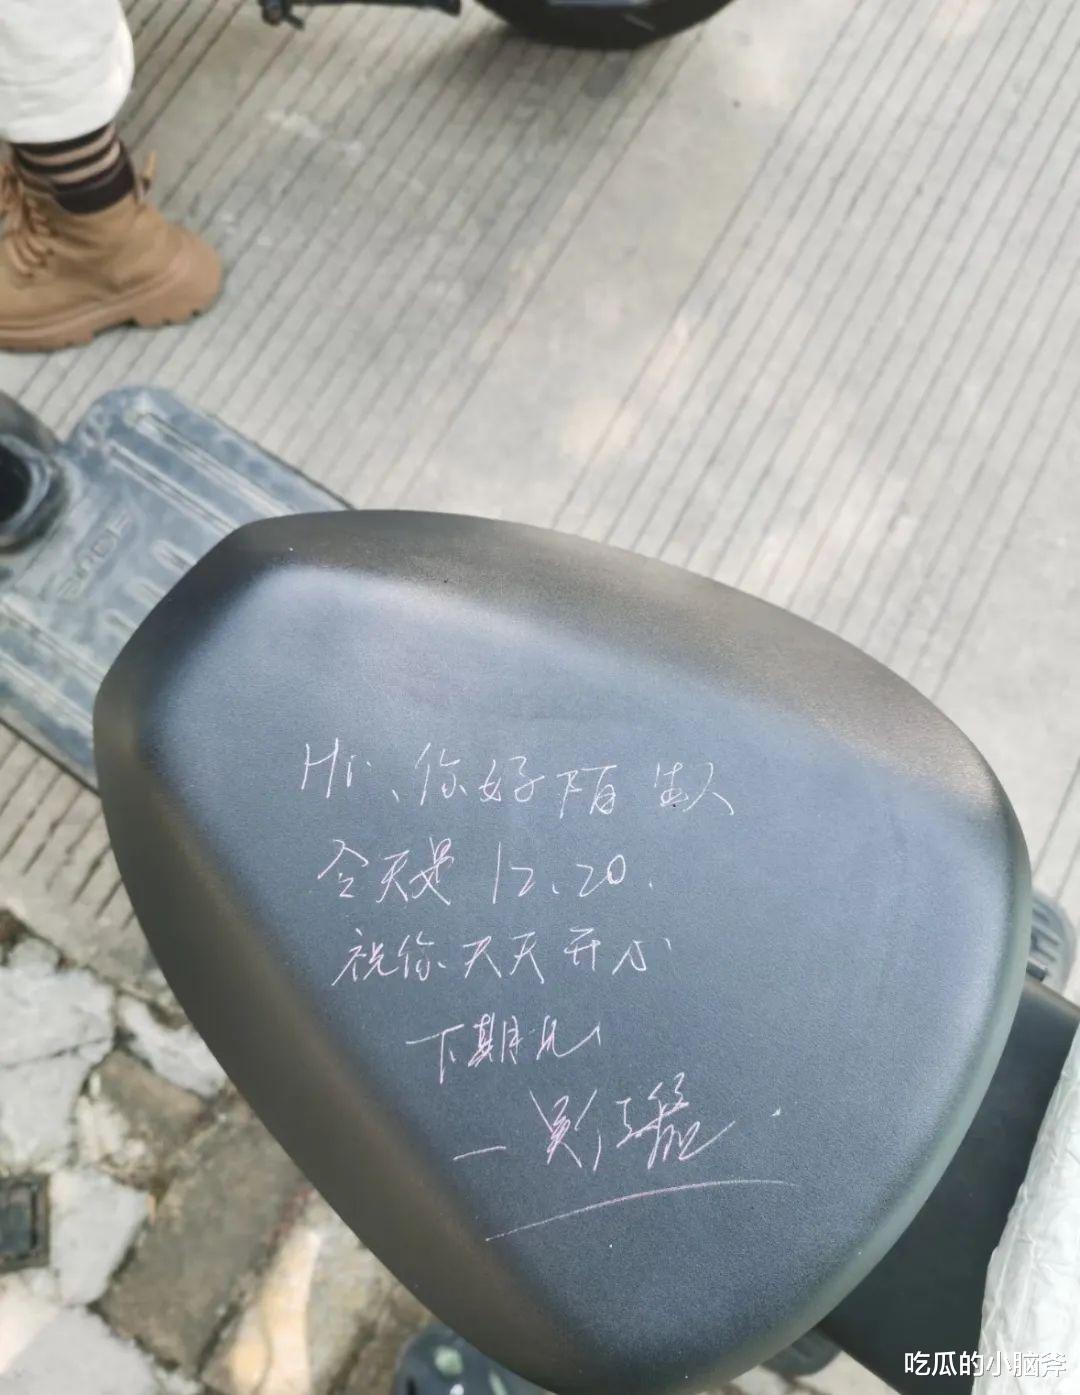 Hi、你好陌生人
今天是12、20.
祝你天天开心
下期见
吃瓜的小脑斧